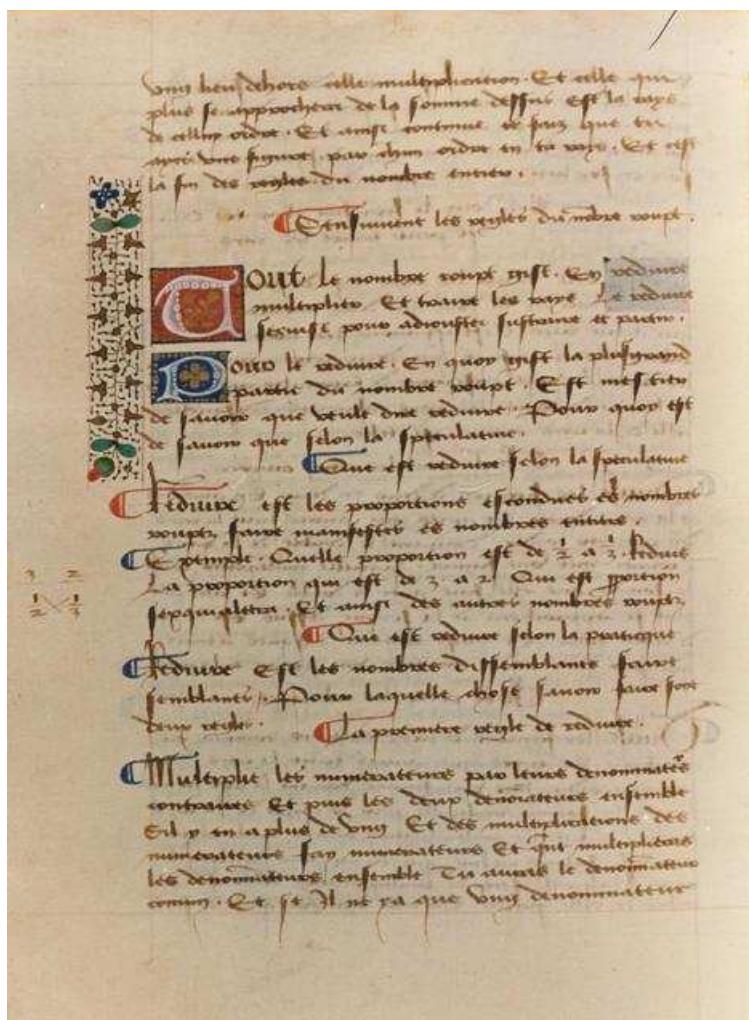 vng lieu dehors celle multiplication. Et celle qui
plus se approchera de la somme dessus est la rays
de celluy ordre. Et ainsi continue et faiz que tu
ayes vne figure par chun ordre en ta rays. Et cest
la fin des regles du nombre entier.
Sensuiuent les regles du nbre roupt.
Tout le nombre roupt gist. En reduire
multiplier Et traire les rays Le reduire
seruist pour adiouster sustraire et partir.
Pour le reduire. En quoy gist la plusgrand
partie du nombre roupt. Est mestier
de sauoir que veult dire reduire. Pour quoy est
de sauoir que selon la speculatiue.
Que est reduire selon la speculatiue
Reduire est les proportions escondues es nombres
rouptz faire manifestes es nombres entiers.
Exemple. Quelle proportion est de 1/2 a 1/3. Reduis
3 2
La proportion qui est de 3 a 2. Qui est pportion
1/2 1/3
sexquialtera. Et ainsi des autres nombres rouptz
Que est reduire selon la praticque
Reduire Est les nombres dissemblants faire
semblants. Pour laquelle chose sauoir faire sont
deux regles.
La premiere regle de reduire.
Multiplie les numerateurs par leurs denominaters
contraires Et puis les deux denoiateurs ensemble
Sil y en a plus de vng Et des multiplicacions des
numerateurs fay numerateurs Et qnt multiplieras
les denomateurs ensemble Tu auras le denomateur
comun. Et se Il ne ya que vng denominateur